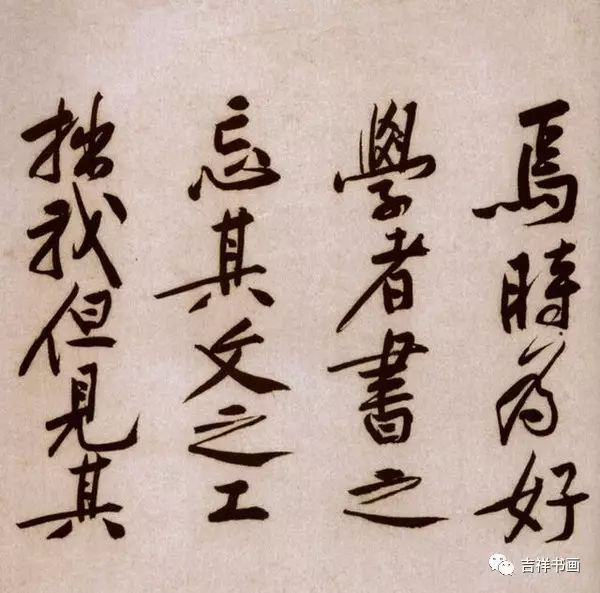 焉時為好
學者書之
忘其文之工
拙我但見其
吉祥书画